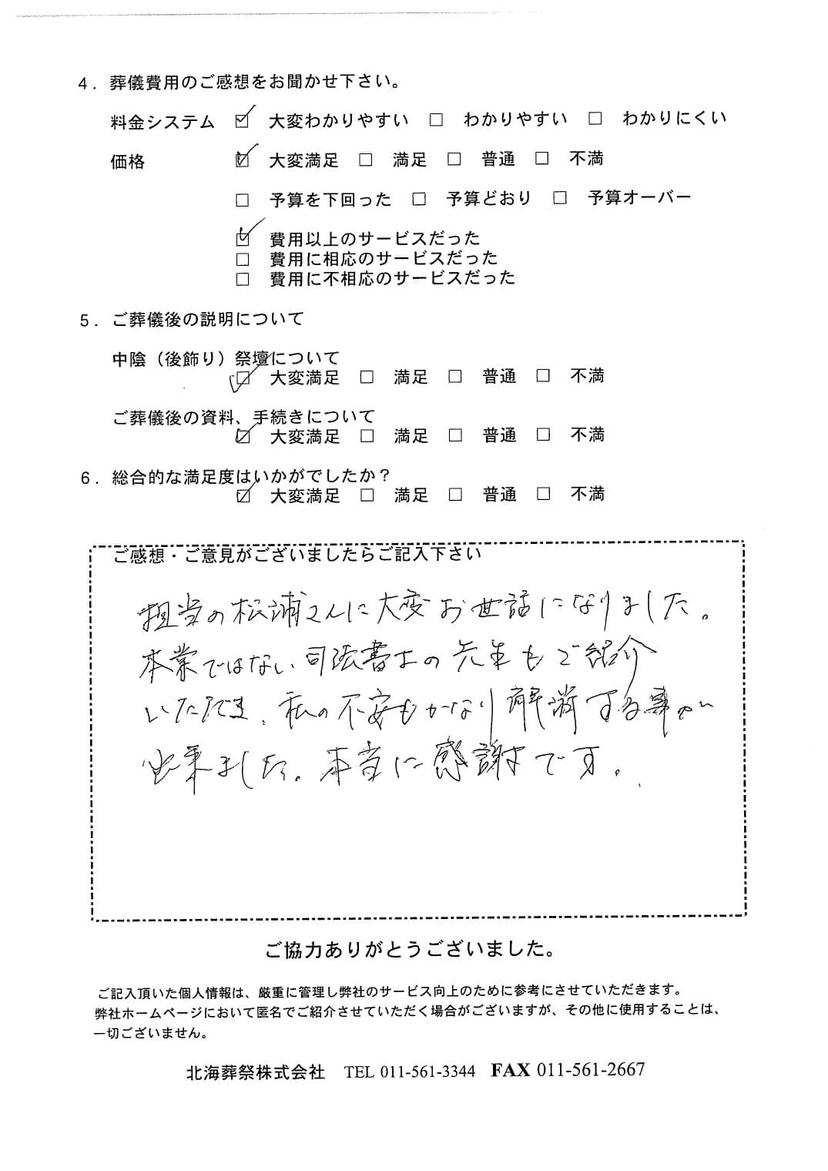 4．葬儀費用のご感想をお聞かせ下さい。
料金システム ☑ 大変わかりやすい □ わかりやすい □ わかりにくい
価格 ☑ 大変満足 □ 満足 □ 普通 □ 不満
□ 予算を下回った □ 予算どおり □ 予算オーバー
☑ 費用以上のサービスだった
□ 費用に相応のサービスだった
□ 費用に不相応のサービスだった
5．ご葬儀後の説明について
中陰（後飾り）祭壇について
☑ 大変満足 □ 満足 □ 普通 □ 不満
ご葬儀後の資料、手続きについて
☑ 大変満足 □ 満足 □ 普通 □ 不満
6．総合的な満足度はいかがでしたか？
☑ 大変満足 □ 満足 □ 普通 □ 不満
ご感想・ご意見がございましたらご記入下さい
担当の松浦さんに大変お世話になりました。
本業ではない司法書士の先生もご紹介
いただき、私の不安もかなり解消する事が
出来ました。本当に感謝です。
ご協力ありがとうございました。
ご記入頂いた個人情報は、厳重に管理し弊社のサービス向上のために参考にさせていただきます。
弊社ホームページにおいて匿名でご紹介させていただく場合がございますが、その他に使用することは、
一切ございません。
北海葬祭株式会社 TEL 011-561-3344 FAX 011-561-2667